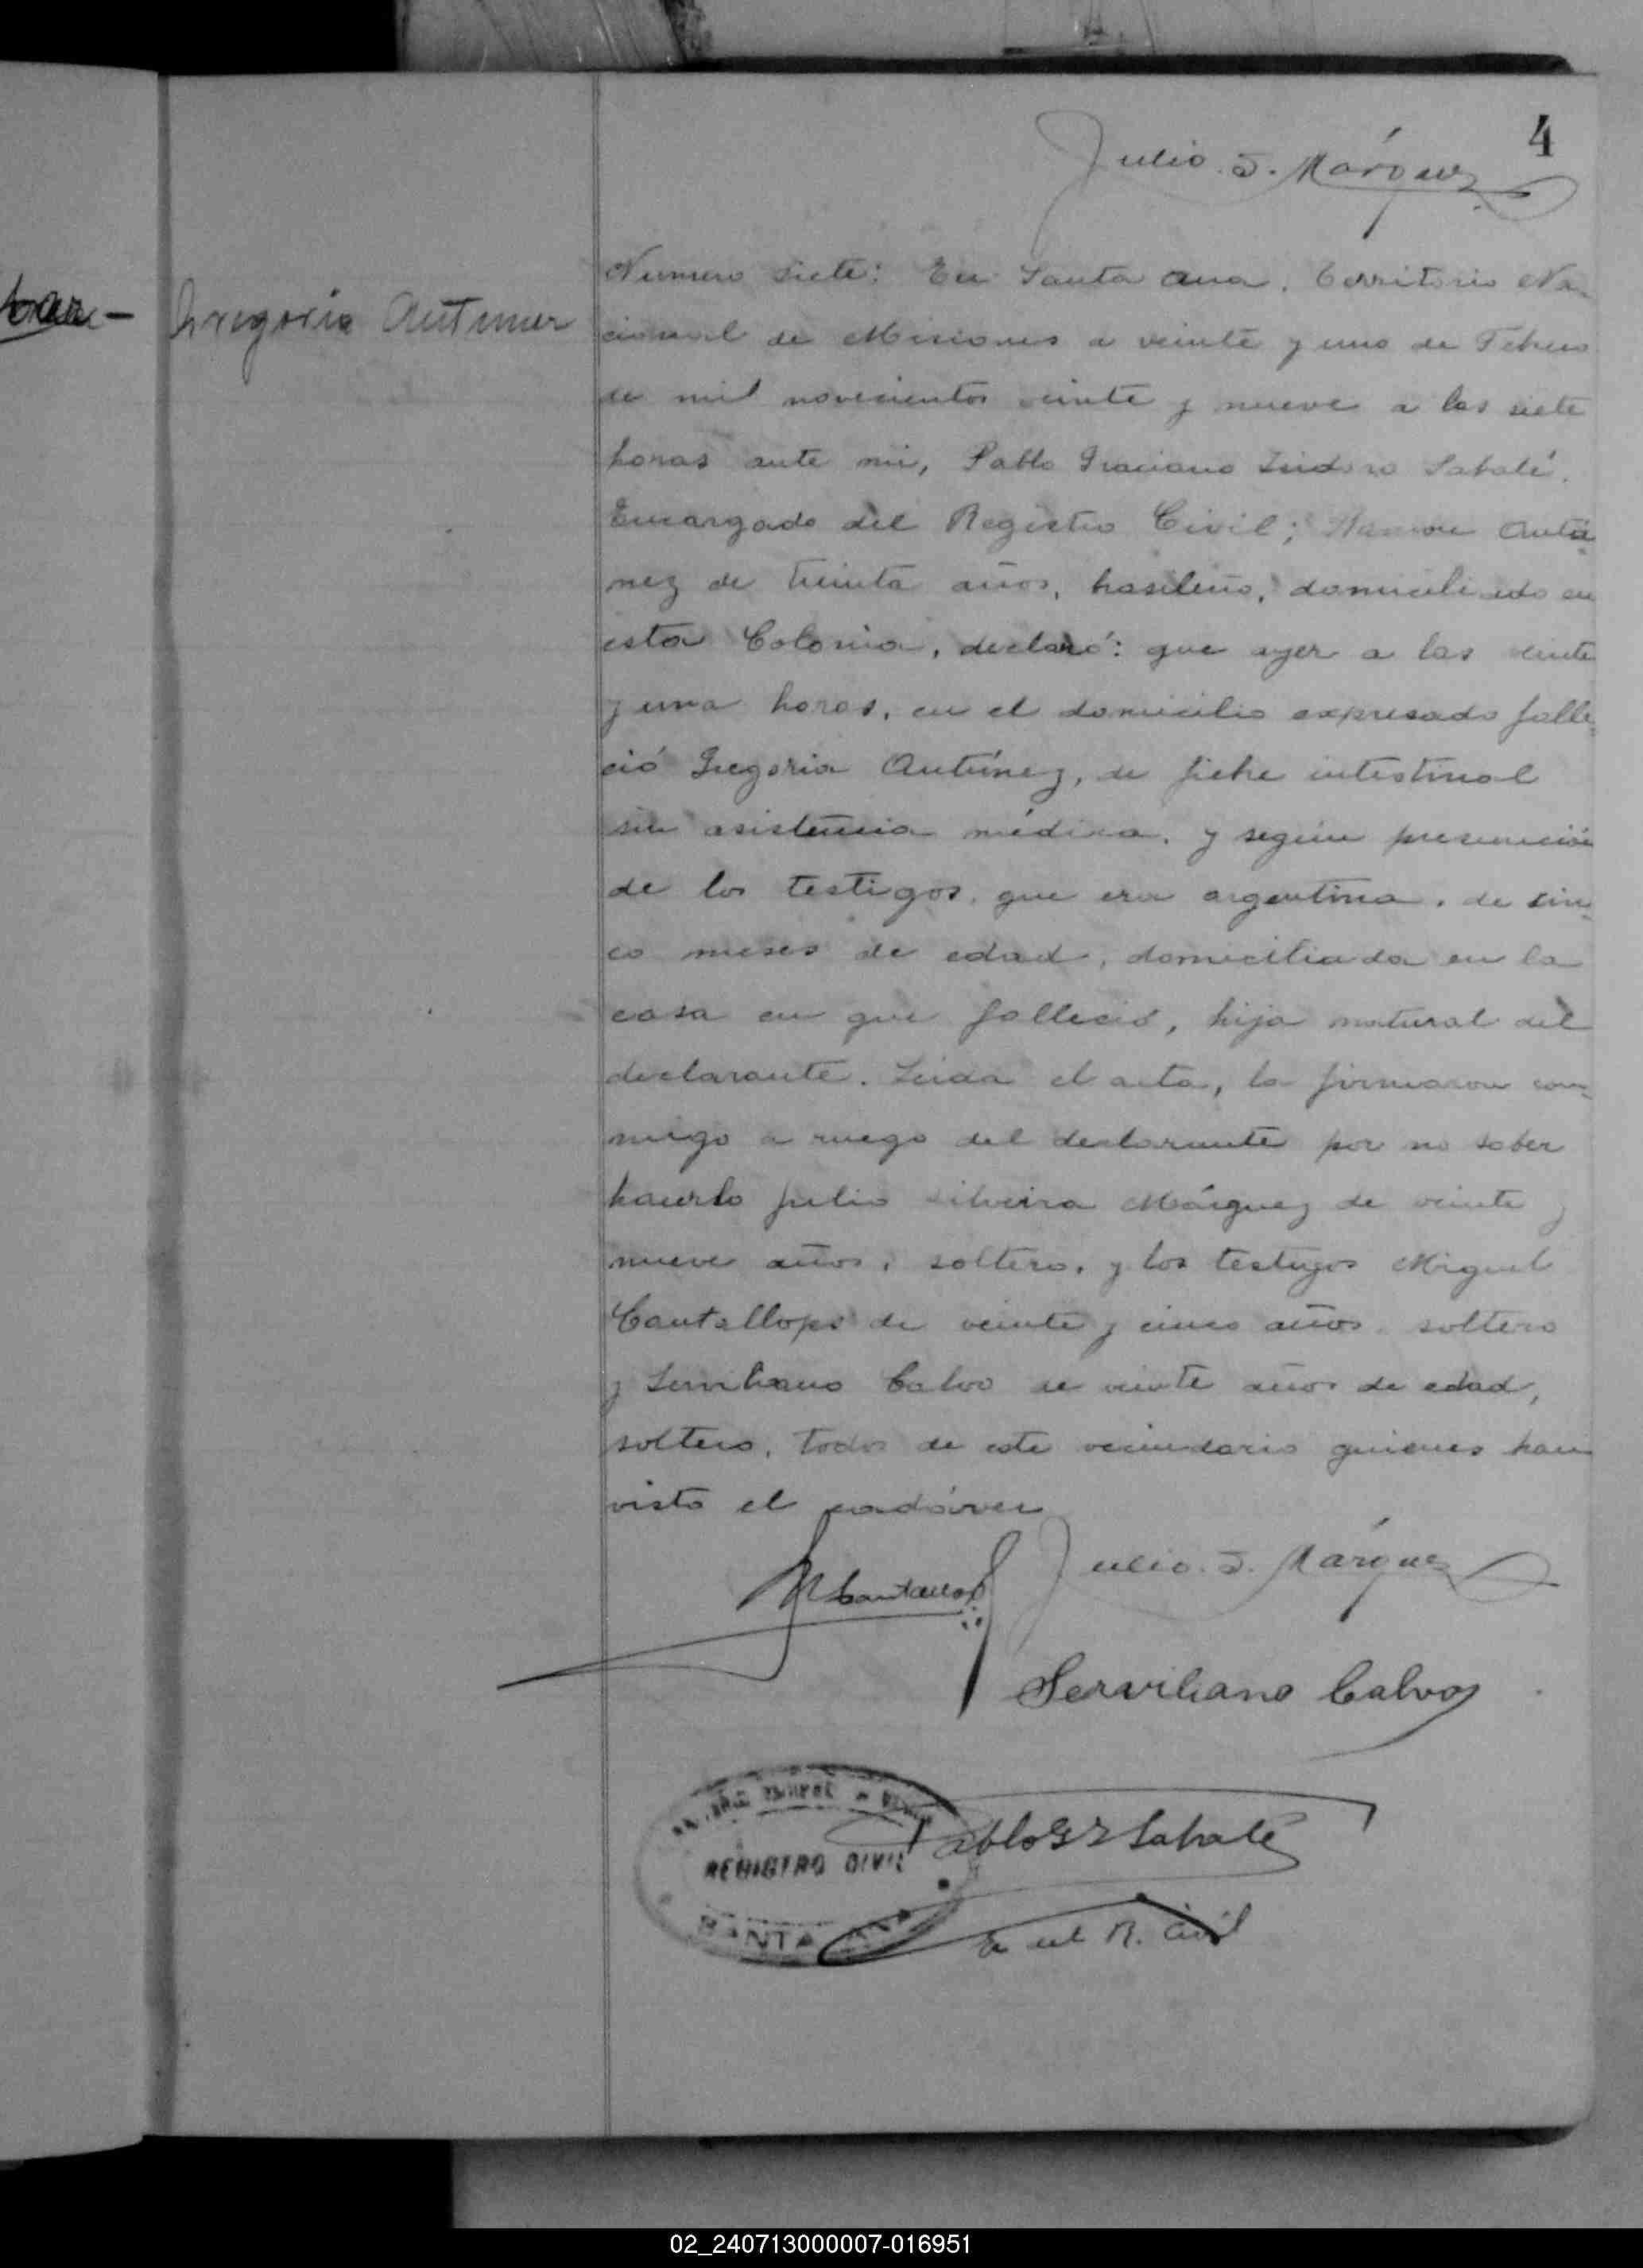 4
Julio S. Márquez
Gregoria Antunez
Numero siete: En Santa Ana, Territorio Na-
cional de Misiones a veinte y uno de Febrero
de mil novecientos veinte y nueve a las siete
horas ante mi, Pablo Graciano Isidoro Sabaté,
Encargado del Registro Civil; Ramon Antú-
nez de treinta años, brasileño, domiciliado en
esta Colonia, declaró: que ayer a las veinte
y una horas, en el domicilio expresado falle-
ció Gregoria Antúnez, de fiebre intestinal
sin asistencia médica, y según presunción
de los testigos, que era argentina, de sin-
co meses de edad, domiciliada en la
casa en que falleció, hija natural del
declarante. Leida el acta, la firmaron con-
migo a ruego del declarante por no saber
hacerlo Julio Silveira Márquez de veinte y
nueve años, soltero, y los testigos Miguel
Cantallops de veinte y cinco años soltero
y Serviliano Calvo de veinte años de edad,
soltero, todos de este vecindario quienes han
visto el cadáver
M Cantallops
Julio. S. Márquez
Serviliano Calvo
REGISTRO CIVIL
SANTA ANA
Pablo G I Sabaté
E del R. Civil
02_240713000007-016951